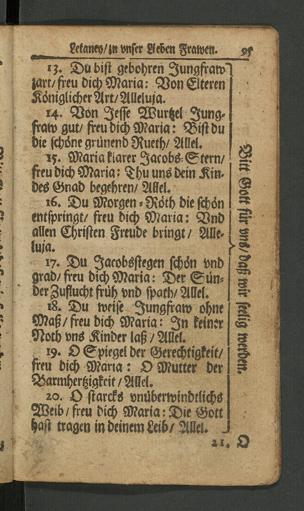 Letaney/ zu vnser Lieben Frawen. 95
13. Du bist gebohren Jungfraw
zart/ freu dich Maria: Von Elteren
Königlicher Art/ Alleluja.
14. Von Jesse Wurtzel Jung-
fraw gut/ freu dich Maria: Bist du
die schöne grünend Rueth/ Allel.
15. Maria klarer Jacobs-Stern/
freu dich Maria: Thu uns dein Kin-
des Gnad begehren/ Allel.
16. Du Morgen-Röth die schön
entspringt/ freu dich Maria: Vnd
allen Christen Freude bringt/ Alle-
luja.
17. Du Jacobsstegen schön vnd
grad/ freu dich Maria: Der Sün-
der Zuflucht früh vnd spath/ Allel.
18. Du weise Jungfraw ohne
Maß/ freu dich Maria: In keiner
Noth vns Kinder laß/ Allel.
19. O Spiegel der Gerechtigkeit/
freu dich Maria: O Mutter der
Barmhertzigkeit/ Allel.
20. O starcks vnüberwindlichs
Weib/ freu dich Maria: Die Gott
hast tragen in deinem Leib/ Allel.
21. O
Bitt Gott für vns/ daß wir seelig werden.